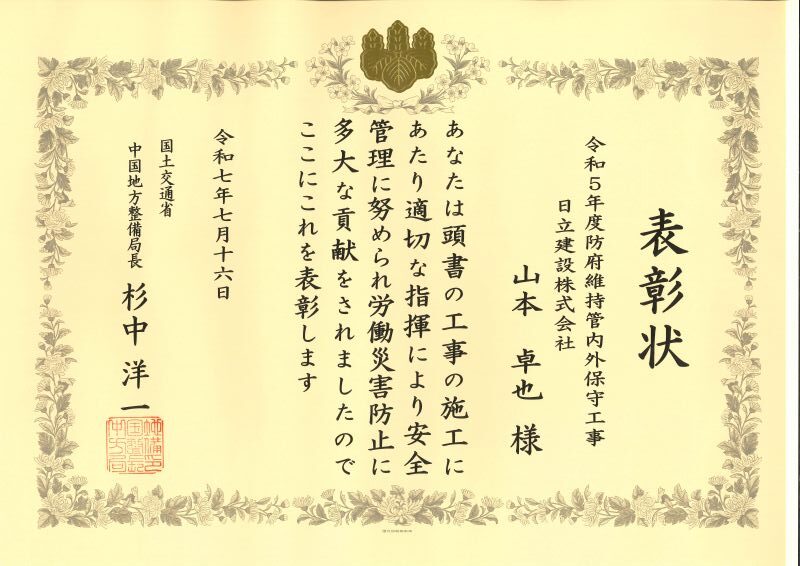 表彰状
令和５年度防府維持管内外保守工事
日立建設株式会社
山本 卓也 様
あなたは頭書の工事の施工に
あたり適切な指揮により安全
管理に努められ労働災害防止に
多大な貢献をされましたので
ここにこれを表彰します
令和七年七月十六日
国土交通省
中国地方整備局長 杉中 洋一